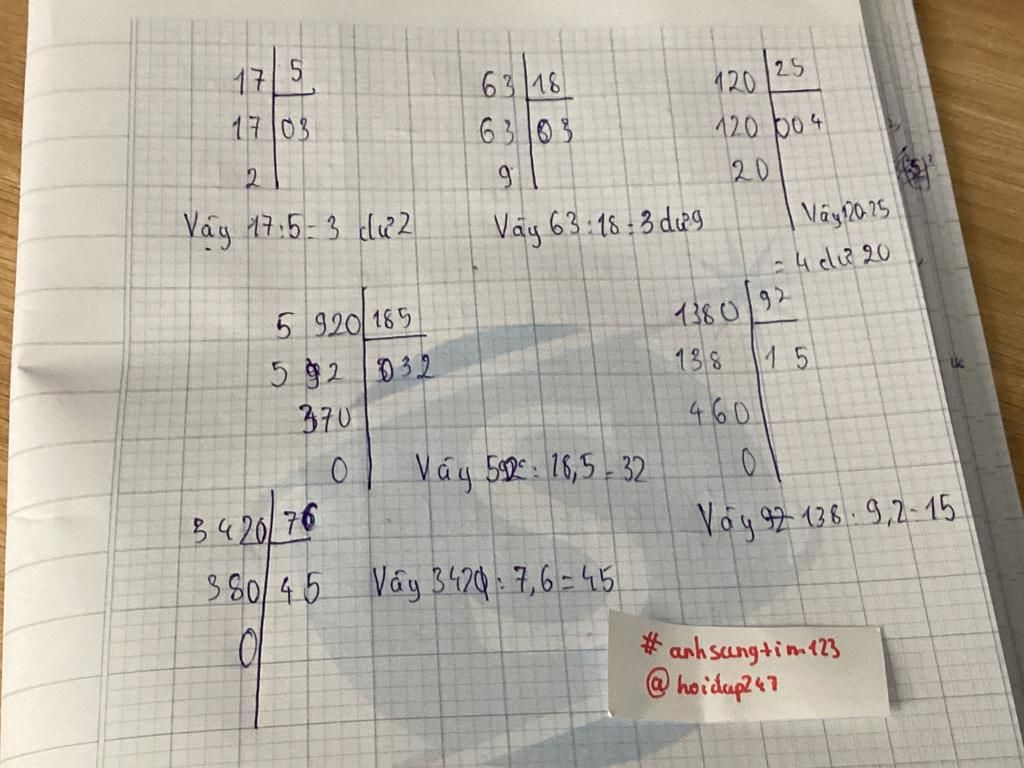 17 5
17 03
2
Vậy 17:5=3 dư 2
63 18
63 03
9
Vậy 63:18=3 dư 9
120 25
120 004
20
Vậy 120:25
= 4 dư 20
5 920 185
5 92 032
370
0
Vậy 592 : 18,5 = 32
1380 92
138 15
460
0
Vậy 92 138 : 9,2 = 15
3 420 76
380 45
0
Vậy 342 : 7,6 = 45
# anhsangtim123
@hoidap247